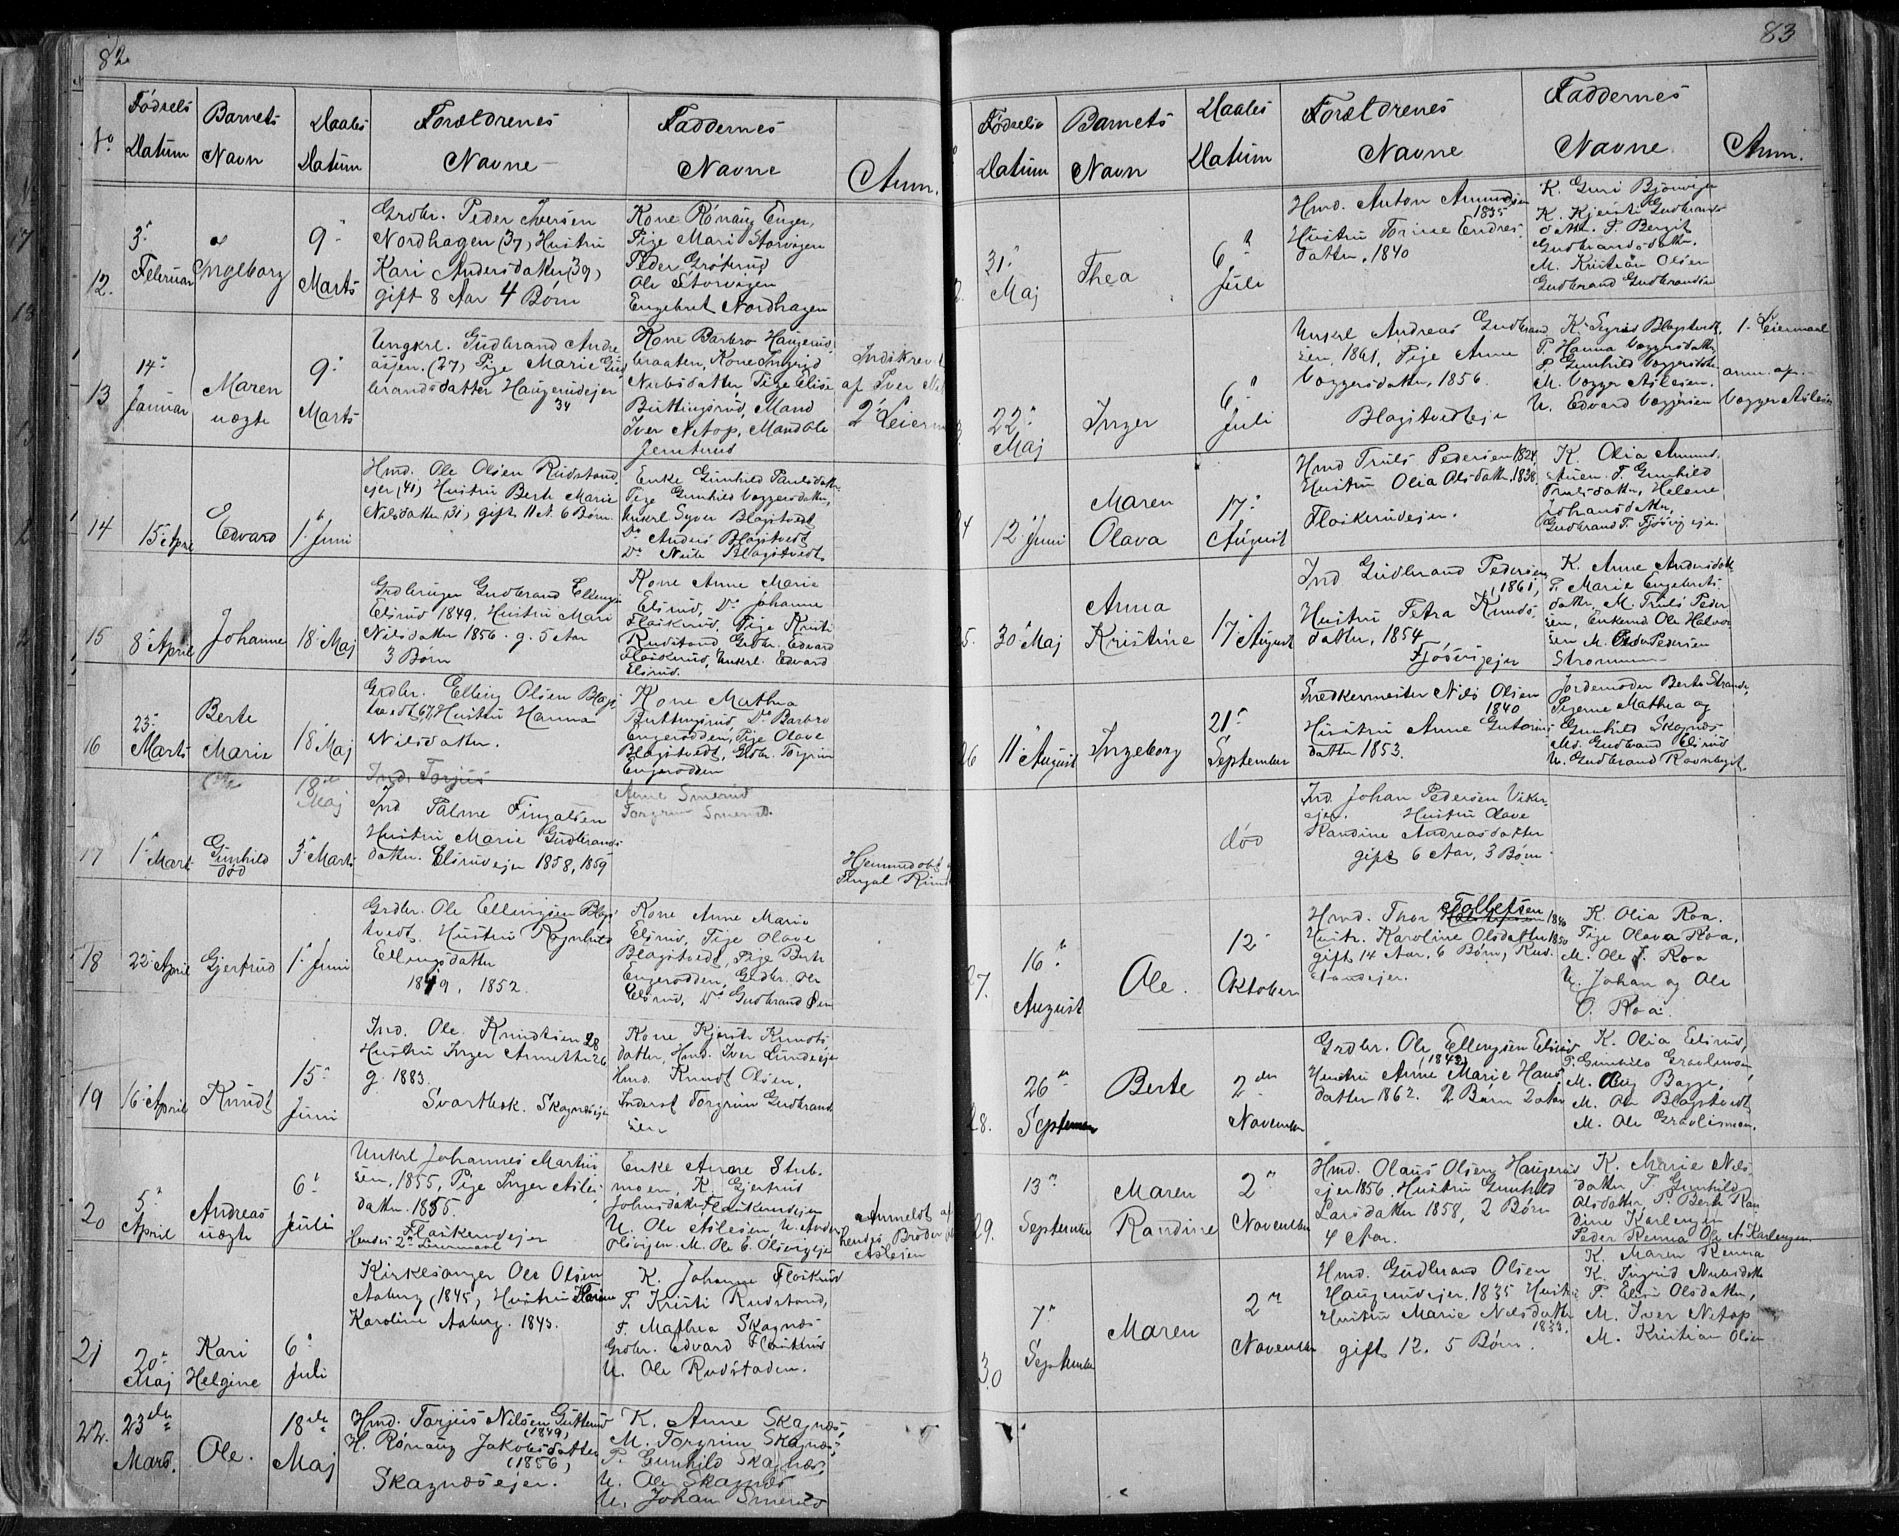 82
No
Fødsels
Datum
Barnets
Navn
Daabs
Datum
Forældrenes
Navne
Faddernes
Navne
Anm.
12.
3.
Februar
Ingeborg
9.
Marts
Grdbr. Peder Iversen
Nordhagen (37), Hustru
Kari Andersdatter (39)
gift 8 Aar 4 Børn
Kone Rønaug Enger,
Pige Mari Storvigen
Peder Grøterud
Ole Storvigen
Engebret Nordhagen
13
14.
Januar
Maren
uægte
9.
Marts
Ungkrl. Gudbrand Andre
assen. (27) Pige Marie Gud
brandsdatter Haugerudejer
34
Kone Barbro Haugerud
braaten, Kone Ingrid
Nubsdatter, Pige Elise
Buttingsrud, Mand
Iver Netop, Mand Ole
Jerntrud
af Iver
2 Leierm
14
15 April
Edvard
1. Juni
Hmd. Ole Olsen Rudstand
ejer (41) Hustru Berte Marie
Nilsdatter (31), gift 11 A. 6 Børn
Enke Gunhild Paulsdatter
Pige Gunhild Væggersdatter,
Unkrl Syver Blagstvedt
Do Anders Blagstvedt
Do Nils Blagstvedt
15
8 April
Johanne
18 Maj
Grdbruger Gudbrand Ellings
Elsrud 1849, Hustru Mari
Nilsdatter 1856. g. 5 Aar
3 Børn
Kone Anne Marie
Elsrud, Do Johanne
Flaskerud, Pige Kristi
Rudstand, Grdbr. Edvard
Flaskerud, Unkrl. Edvard
Elsrud.
16
23.
Marts
Berte
Marie
18 Maj
Grdbr. Elling Olsen Blags
tvedt, Hustru Hanna
Nilsdatter.
Kone Mathea
Buttingsrud, Do Barbro
Engerodden, Pige Olave
Blagstvedt, Grdbr. Torgrim
Engerodden
18
Maj
Ind. Torjus
Anne Smerud
Torgrim Smerud.
17
1. Mart
Gunhild
død
3. Marts
Ind Palme Fingalsen
Hustru Marie Gudbrands
datter. Elsrudejer 1858, 1859
Hjemmedøbt
Fingal
18
22. April
Gjertrud
1. Juni
Grdbr. Ole Ellingsen Blags
tvedt, Hustru Ragnhild
Ellingsdatter
1849, 1852.
Kone Anne Marie
Elsrud, Pige Olave
Blagstvedt, Pige Berte
Engerodden, Grdbr. Ole
Elsrud, Do Gudbrand
19
16 April
Knudt
15.
Juni
Ind. Ole Knudtsen 28
Hustru Inger Annette 26
g. 1883.
Svartbek. Skagnæsejer
Kone Kjersti Knudts
datter, Hmd. Iver Lundeeje
Hmd. Knudt Olsen,
Inderst Torgrim Gudbrand
sen
20
5.
April
Andreas
uægte
6.
Juli
Unkrl Johannes Martin
sen, 1855, Pige Inger Asles
datter. 1855.
Flaskerudejer
Hendes 2. Leiermaal
Enke Anne Stub.
moen, K. Gjertrud
Johnsdatter Flaskerudejen
U. Ole Aslesen, U. Anders
Olsvigen. M. Ole E. Olsvigeje
Anmeldt af
hendes Broder
Aslesen
21
20.
Maj
Kari
Helgine
6.
Juli
Kirkesanger Ole Olsen
Aaberg (1845), Hustru Karen
Karoline Aaberg. 1843.
K. Johanne Flaskerud
P. Kristi Rudstand,
P. Mathea Skagnæs
Grdbr. Edvard Flaskerud
U. Ole Rudstaden.
22.
23de
Mars.
Ole.
18de
Maj
Hmd. Torjus Nilsen Gutterud
(1849)
H. Rønaug Jakobsdatter
(1856)
Skagnæsejer.
K. Anne Skagnæs,
M. Torgrim Skagnæs,
P. Gunhild Skagnæs,
U. Ole Skagnæs
U. Johan Smerud
83
Fødsels
Datum
Barnets
Navn
Daabs
Datum
Forældrenes
Navne
Faddernes
Navne
Anm.
31.
Maj
Thea
6.
Juli
Hmd. Anton Amundsen
1835
Hustru Torine Endres
datter, 1840
K. Guri Bjønvigen
K. Kjersti Gudbrands
datter. P. Bergit
Gudbrandsdatter.
M. Kristian Olsen
Gudbrand Gudbrandsen
22.
Maj
Inger
6.
Juli
Unkrl Andreas Gudbrand
sen, 1861, Pige Anne
Væggersdatter, 1856.
Blagstvedteje
K. Sigrid Blagstvedt,
P. Hanna Væggersdatter
P. Gunhild Væggersdatter
M. Vægger Aslesen.
U. Edvard Væggersen
1. Leiermaal
anm. af
Vægger Aslesen
24
12 Juni
Maren
Olava
17.
August
Hmd Truls Pedersen 1824
Hustru Olia Olsdatter, 1838
Flaskerudejer.
K. Olia Amund
P. Gunhild
Trulsdatter, Helene
Johansdatter,
Gudbrand T. Fjøsvigeje
25.
30 Maj
Anna
Kristine
17 August
Ind Gudbrand Pedersen
1861,
Hustru Petra Knuds
datter, 1854
Fjøsvigejer
K. Anne Andersdatter
P. Marie Engebrets
datter, M. Truls Peder
sen, Enkemd Ole Halvor
sen M. Peder Pedersen
Strømmen
26
11 August
Ingeborg
21.
September
Snedkermester Nils Olsen
1840
Hustru Anne Gutorms
datter 1853.
Jordemoder Berte Strande,
Pigerne Mathea og
Gunhild Skagnæs
Md. Gudbrand Elsrud
U. Gudbrand Ravnbyst.
død
Ind. Johan Pedersen Viker
ejer. Hustru Olave
Randine Andreasdatter
gift 6 Aar, 3 Børn
27.
16.
August
Ole.
12
Oktober
Hmd. Thor Tollefsen 1840
Hustr. Karoline Olsdatter 1850
gift 14 Aar, 6 Børn, Rud
standejer.
K. Olia Roa.
Pige Olava Roa,
M. Ole J. Roa
U. Johan og Ole
O. Roa.
28.
26
September
Berte
2den
November
Grdbr. Ole Ellingsen Elsrud
(1842)
Hustru Anne Marie Hans
datter 1862. 2 Børn 2 Aar
K. Olia Elsrud,
P. Gunhild Gravlimoen,
M. Bagge,
M. Ole Blagstvedt
M. Ole Gravlimoen.
29.
13
September
Maren
Randine
2
November
Hmd. Olaus Olsen Haugerud
ejer 1856, Hustru Gunhild
Larsdatter 1858, 2 Børn
4 Aar.
K. Marie Nils
datter, P. Gunhild
Olsdatter, P. Berte Ran
dine Karlengen
Peder Renna Ole A. Karlengen
30
7
September
Maren
2
November
Hmd. Gudbrand Olsen
Haugerudejer. 1835 Hustru
Hustru Marie Nilsdatter
1833.
gift 12. 5 Børn.
K. Maren Renna
K. Ingrid Nubsdatter
P. Elise Olsdatter,
M. Iver Netop
M. Kristian Olsen